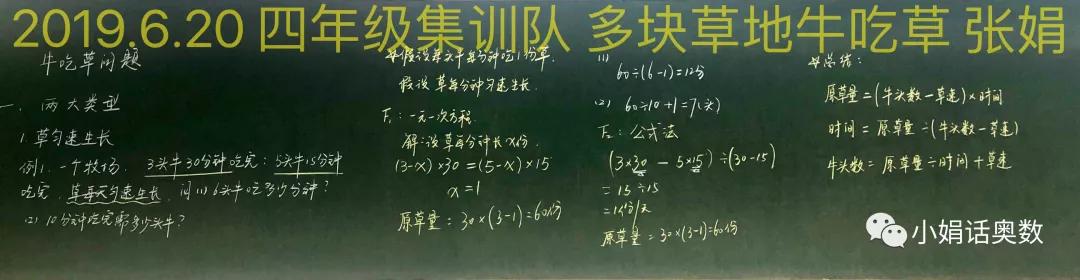 2019.6.20 四年级集训队 多块草地牛吃草 张娟
牛吃草问题
一、两大类型
1.草匀速生长
例1.一个牧场,3头牛30分钟吃完;5头牛15分钟
吃完,草每天匀速生长,问(1)6头牛吃多少分钟?
(2)10分钟吃完需多少头牛?
假设每头牛每分钟吃1份草.
假设草每分钟匀速生长.
法:一元一次方程.
解:设草每分钟长x份.
(3-x)×30=(5-x)×15
x=1
原草量:30×(3-1)=60份
(1)
60÷(6-1)=12分
(2) 60÷10+1=7(头)
法:公式法
(3×30-5×15)÷(30-15)
=15÷15
=1份/天
原草量=30×(3-1)=60份
总结:
原草量=(牛头数-草速)×时间
时间=原草量÷(牛头数-草速)
牛头数=原草量÷时间+草速
小娟话奥数